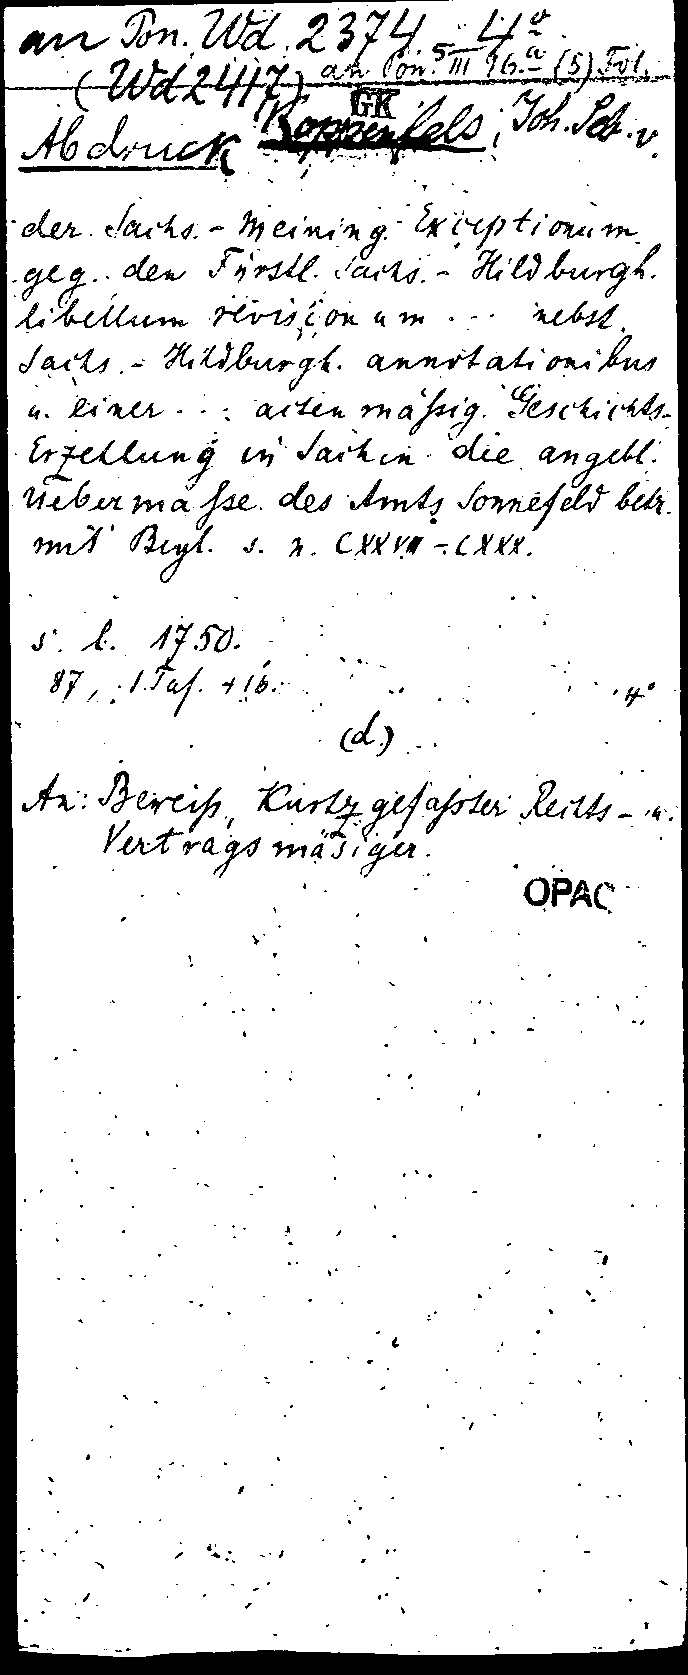 an Pon. Wd. 2374 4º
(Wd 2417) an Pon. III 96.a (5) Fol.
GK
Abdruck Koppenfels, Joh. Seb. v.
der Sachs.-Meining. Exceptionum
geg. den Fürstl. Sachs.-Hildburgh.
libellum revisionum ... nebst
Sachs.-Hildburgh. annotationibus
u. einer ... acten mäßig. Geschichts-
Erzehlung in Sachen die angebl.
Uebermaße des Amts Sonnefeld betr.
mit Beyl. s. n. CXXVIII-CXXX.
s. l. 1750.
87, 1 Taf. + 16. 4º
(d.)
An: Beweiß, Kurtz gefaßter Rechts- u.
Vertragsmäsiger.
OPAC